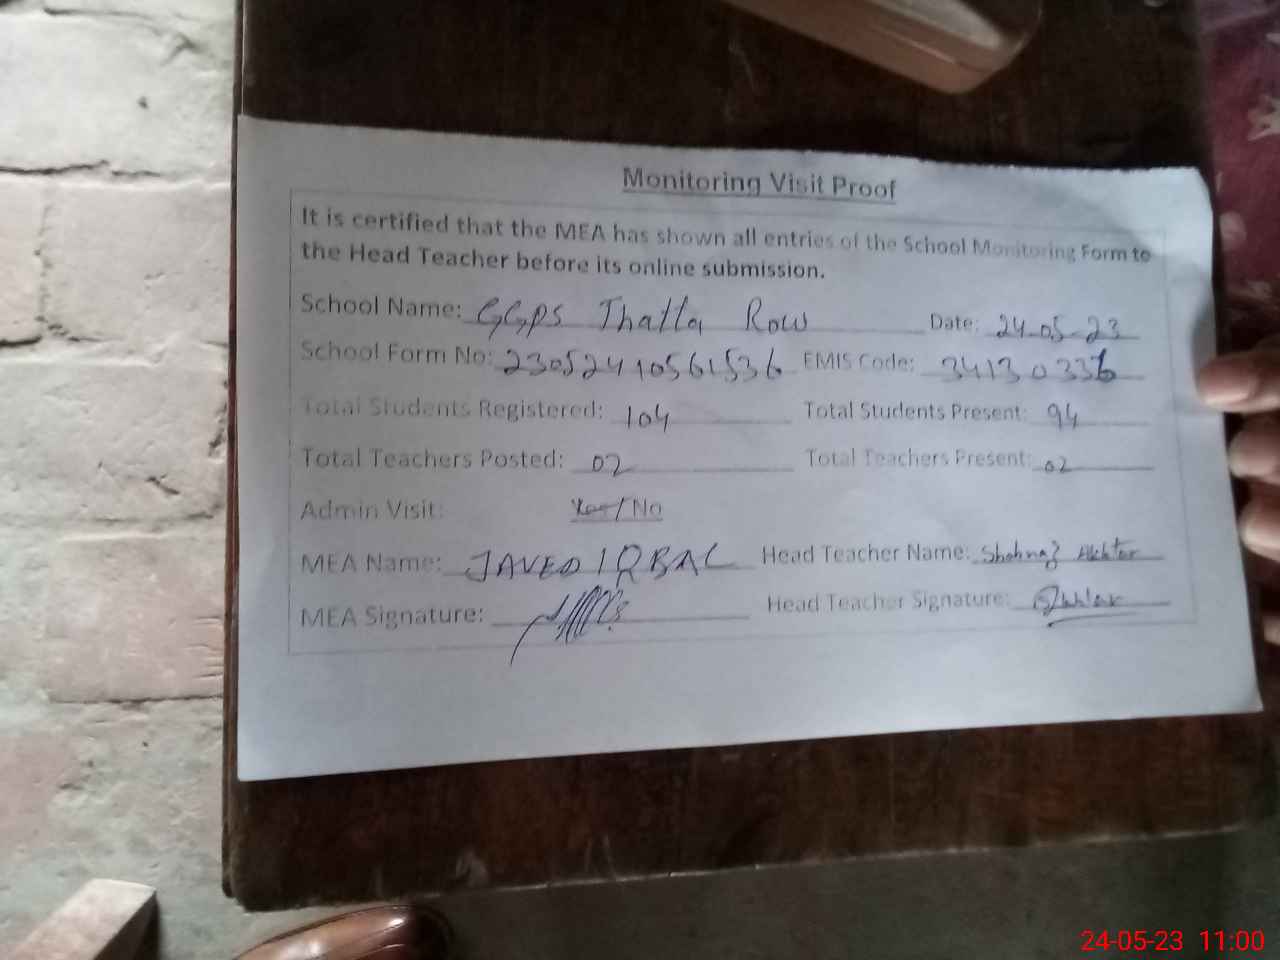 Monitoring Visit Proof
It is certified that the MEA has shown all entries of the School Monitoring Form to
the Head Teacher before its online submission.
School Name: GGPS Thatta Row Date: 24-05-23
School Form No: 23052410561536 EMIS Code: 34130336
Total Students Registered: 104 Total Students Present: 94
Total Teachers Posted: 02 Total Teachers Present: 02
Admin Visit: Yes/No
MEA Name: JAVED IQBAL Head Teacher Name: Shahnaz Akhtar
MEA Signature: Head Teacher Signature:
24-05-23 11:00